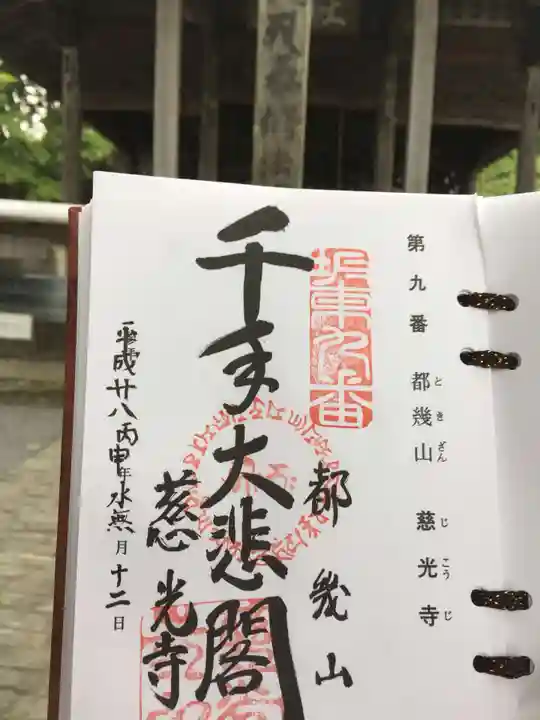 第九番 都幾山 慈光寺
とき ざん じ こう じ
坂東九番
都幾山
千手大悲閣
慈光寺
平成廿八丙申年水無月十二日